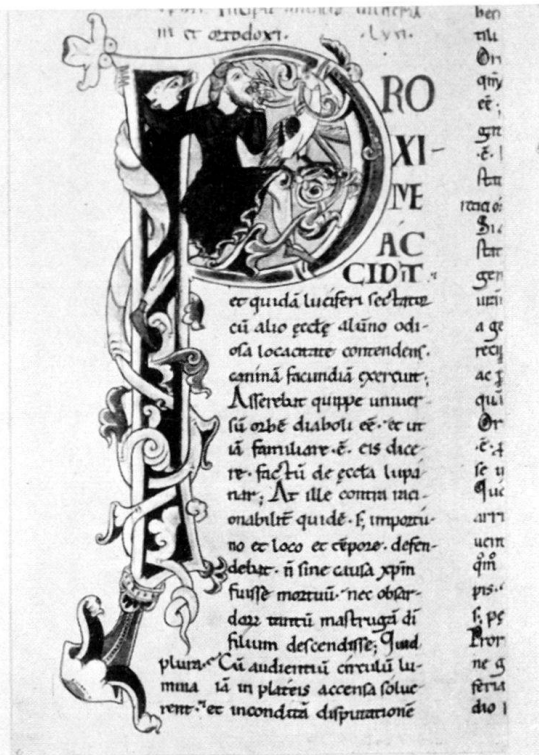 in et ortodoxi. .lxvi.
PRO
XI-
ME
AC
CIDIT.
et quidā luciferi sectator
cū alio ęcclę alūno odi-
osa locacitate contendens.
caninā facundiā exercuit;
Asserebat quippe univer-
sū orbē diaboli eē. et ut
iā familiare .ē. eis dice-
re. factū de ęccla lupa-
nar; At ille contra raci-
onabilit̄ quidē. s; importu-
no et loco et tēpore. defen-
debat. n̄ sine causa xp̄m
fuisse mortuū. nec obsar-
dorū tantū mastrugā di
filium descendisse; Quid
plura. Cū audientiū circulū lu-
mina iā in plateis accensa solue-
rent. et inconditā disputationē
ben
till
Ori
eē;
gn
.ē.
stat
Si
stat
gen
a ge
reci
ac
qui
Or
.ē.
se u
Que
arri
ucin
qm̄
pis.
s; pę
Pror
ne g
feria
dio